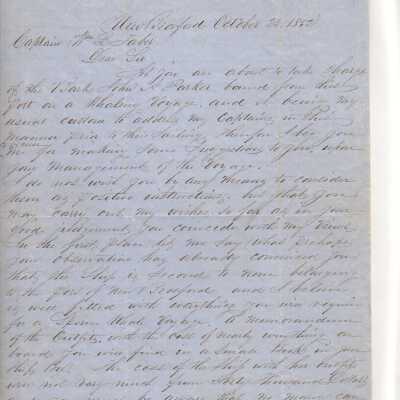 New Bedford October 23, 1852
Captain Wm L Taber
Dear Sir
As you are about to take charge
of the Bark John A Parker bound from this
Port on a Whaling Voyage, and it being my
usual custom to address my Captains in this
manner prior to their Sailing, therefore I beg you
to excuse me for making some suggestions to you, upon
your Management of the Voyage.
I do not wish you by any means to consider
them as positive instructions, but that you
may carry out my wishes, so far as in your
good judgement you coincide with my views.
In the first place let me say what perhaps
your observation has already convinced you
that the Ship is Second to none belonging
to the Port of New Bedford, and I believe
is well fitted with everything you will require
for a Sperm Whale Voyage. A Memorandum
of the Outfits, with the cost of nearly everything on
board you will find in a Small Book in your
Ship Box. The cost of the Ship with her outfits
will not vary much from Sixty Thousand Dollars